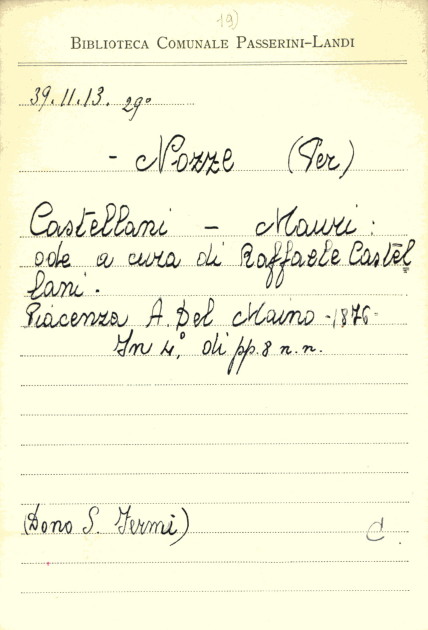 19)
BIBLIOTECA COMUNALE PASSERINI-LANDI
39.11.13. 29º
- Nozze (Per)
Castellani - Mauri:
ode a cura di Raffaele Castel
lani.
Piacenza A. Del Maino - 1876 -
In 4º. di pp. 8 n. n.
(Dono S. Fermi) C.